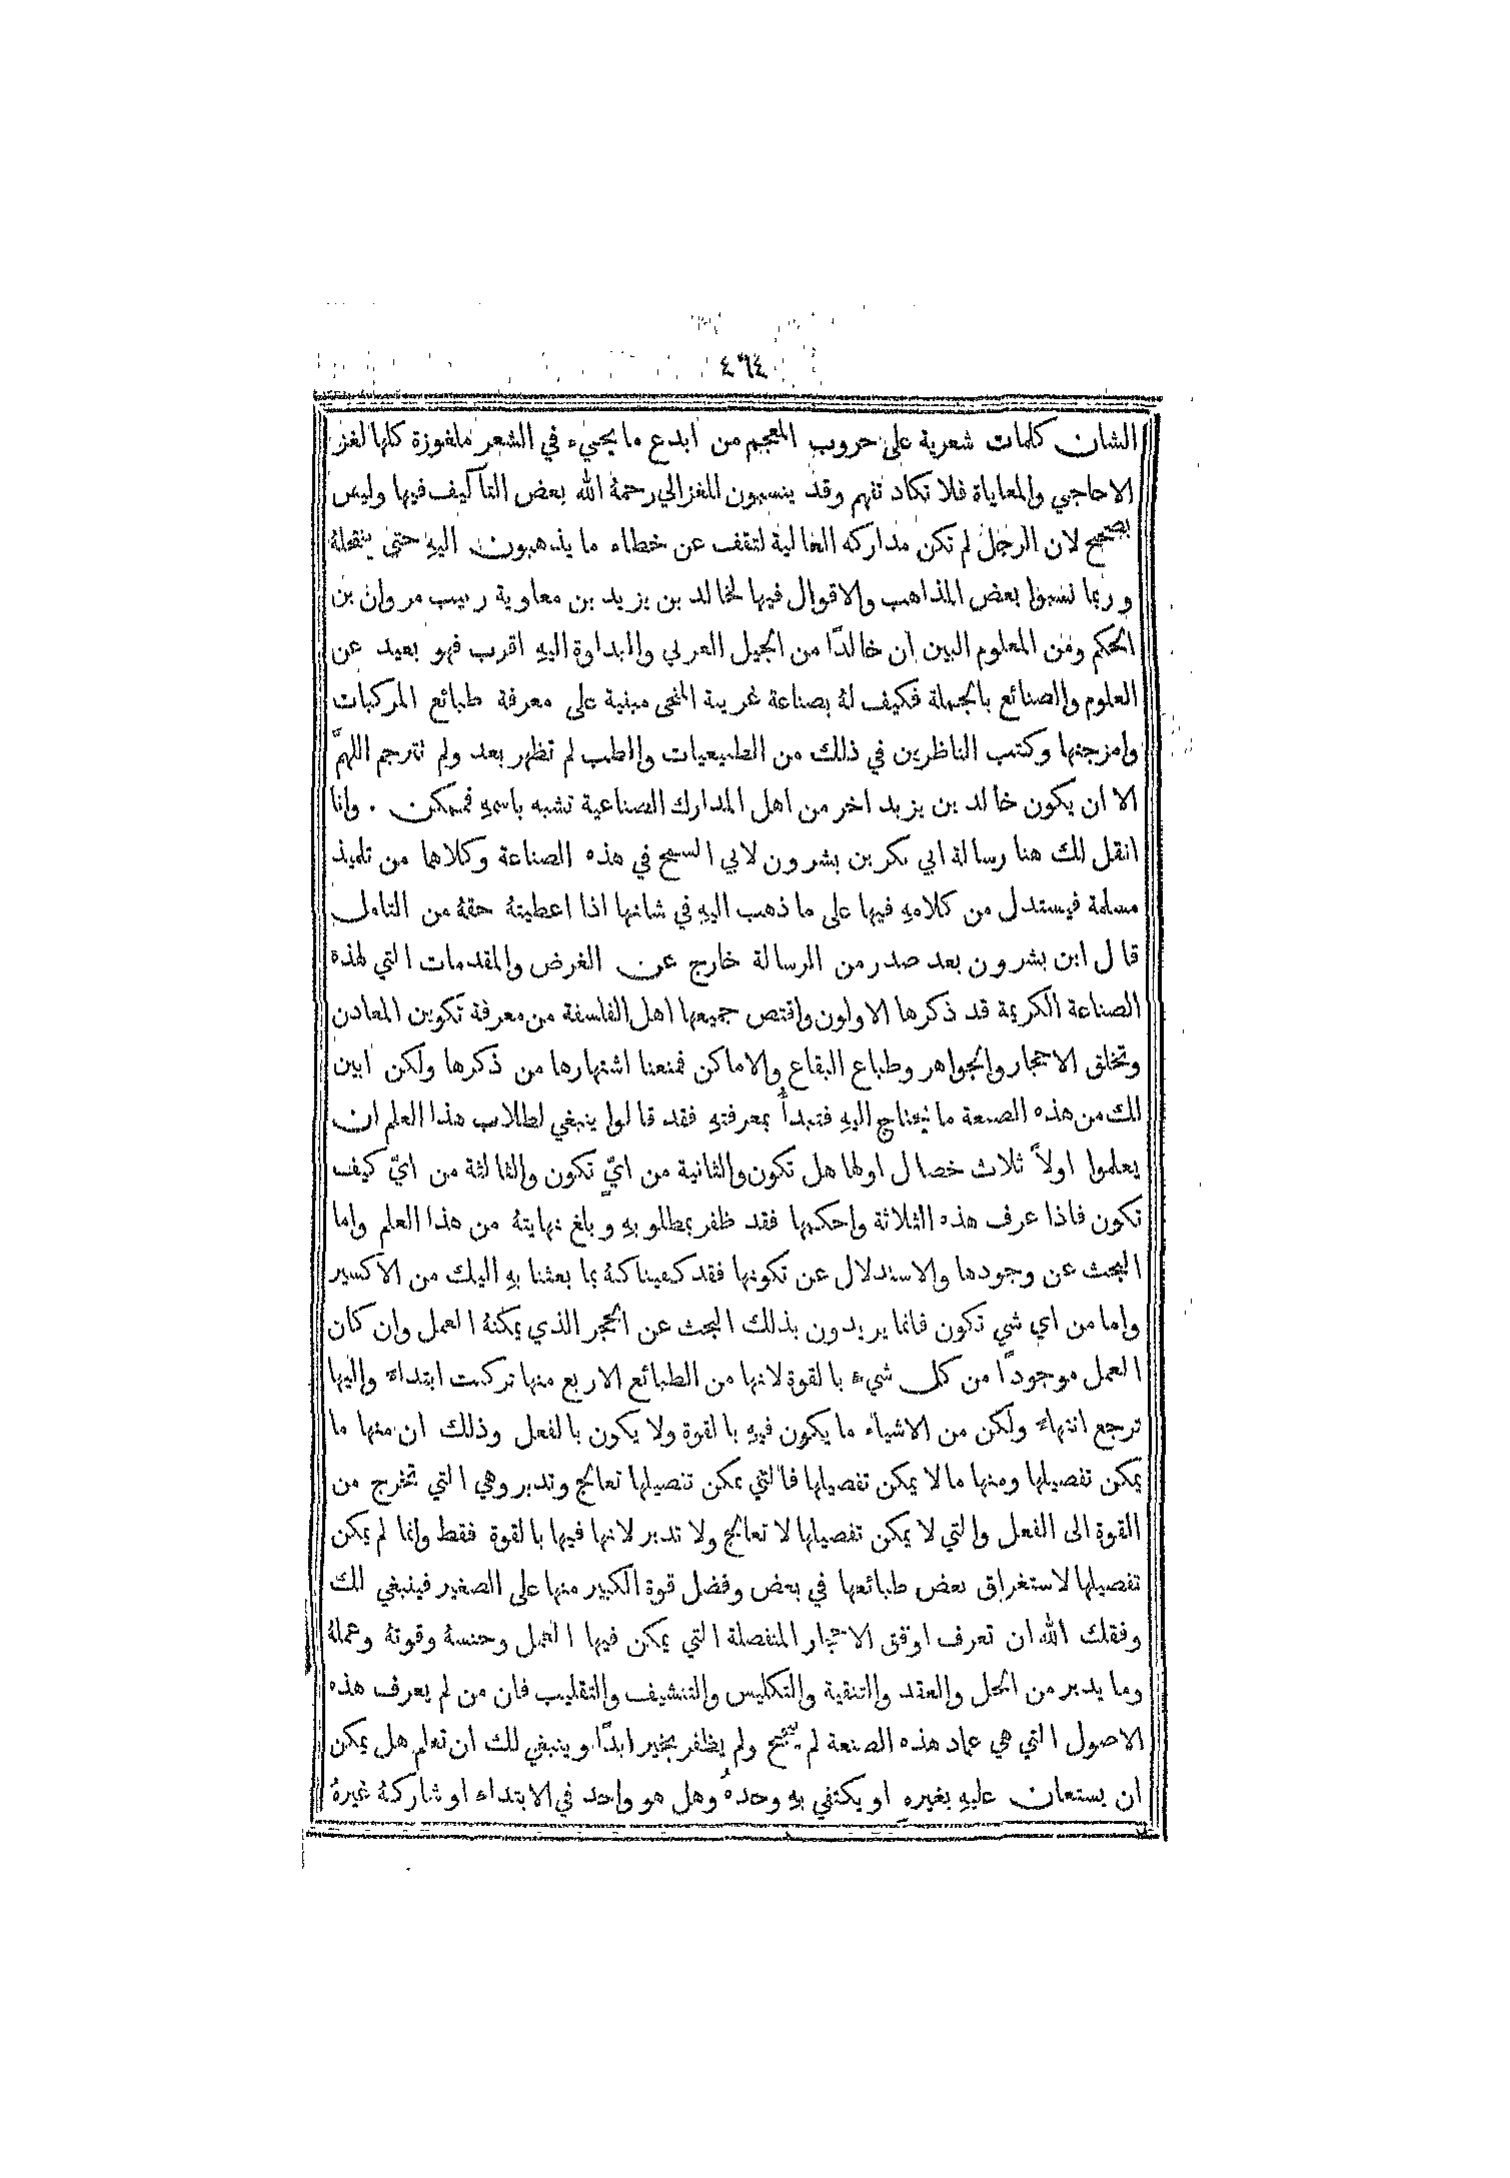 ٤٦٤
الشان كلمات شعرية على حروب المعجم من ابدع ما يجيء في الشعر ملغوزة كلها لغز
الاحاجي والمعاياة فلا تكاد تفهم وقد ينسبون للغزالي رحمهُ الله بعض التآكيف فيها وليس
بصحيح لان الرجل لم تكن مداركه العالية لتقف عن خطاء ما يذهبون اليهِ حتى ينتحلهُ
وربما نسبوا بعض المذاهب والاقوال فيها لخالد بن يزيد بن معاوية ربيب مروان بن
الحكم ومن المعلوم البين ان خالدًا من الجيل العربي والبداوة اليهِ اقرب فهو بعيد عن
العلوم والصنائع بالجملة فكيف لهُ بصناعة غريبة المنحى مبنية على معرفة طبائع المركبات
وامزجتها وكتب الناظرين في ذلك من الطبيعيات والطب لم تظهر بعد ولم تترجم اللهمَّ
الا ان يكون خالد بن يزيد اخر من اهل المدارك الصناعية تشبه باسمهِ فممكن . وانا
انقل لك هنا رسالة ابي بكر بن بشرون لابي السمح في هذه الصناعة وكلاهما من تلميذ
مسلمة فيستدل من كلامهِ فيها على ما ذهب اليهِ في شانها اذا اعطيتهُ حقهُ من التامل
قال ابن بشرون بعد صدر من الرسالة خارج عن الغرض والمقدمات التي لهذه
الصناعة الكريمة قد ذكرها الاولون واقتص جميعها اهل الفلسفة من معرفة تكوين المعادن
وتخلق الاحجار والجواهر وطباع البقاع والاماكن فمنعنا اشتهارها من ذكرها ولكن ابين
لك من هذه الصنعة ما يُحتاج اليهِ فتبدأُ بمعرفتهِ فقد قالوا ينبغي لطلاب هذا العلم ان
يعلموا اولاً ثلاث خصال اولها هل تكون والثانية من ايّ تكون والثالثة من ايّ كيف
تكون فاذا عرف هذه الثلاثة واحكمها فقد ظفر بمطلوبهِ وبلغ نهايتهُ من هذا العلم واما
البحث عن وجودها والاستدلال عن تكونها فقد كفيناكهُ بما بعثنا بهِ اليك من الاكسير
واما من اي شي تكون فانما يريدون بذلك البحث عن الحجر الذي يمكنهُ العمل وان كان
العمل موجودًا من كل شيء بالقوة لانها من الطبائع الاربع منها تركبت ابتداءً واليها
ترجع انتهاءً ولكن من الاشياء ما يكون فيهِ بالقوة ولا يكون بالفعل وذلك ان منها ما
يمكن تفصيلها ومنها ما لا يمكن تفصيلها فالتي يمكن تفصيلها تعالج وتدبر وهي التي تخرج من
القوة الى الفعل والتي لا يمكن تفصيلها لا تعالج ولا تدبر لانها فيها بالقوة فقط وانما لم يمكن
تفصيلها لاستغراق بعض طبائعها في بعض وفضل قوة الكبير منها على الصغير فينبغي لك
وفقك الله ان تعرف اوفق الاحجار المنفصلة التي يمكن فيها العمل وجنسهُ وقوتهُ وعملهُ
وما يدبر من الحل والعقد والتنقية والتكليس والتنشيف والتقليب فان من لم يعرف هذه
الاصول التي هي عماد هذه الصنعة لم ينجح ولم يظفر بخير ابدًا وينبغي لك ان تعلم هل يمكن
ان يستعان عليهِ بغيرهِ او يكتفي بهِ وحدهُ وهل هو واحد في الابتداء او شاركهُ غيرهُ